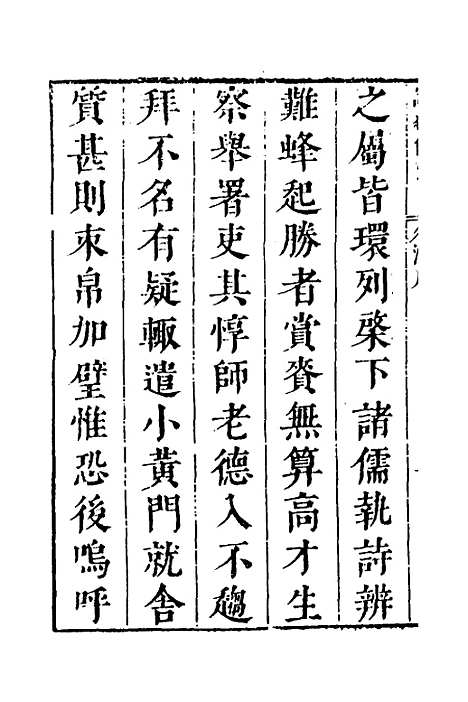 之屬皆環列棨下諸儒執訏辨
難蜂起勝者賞賚無算高才生
察舉署吏其惇師老德入不趨
拜不名有疑輙遣小黄門就舎
質甚則束帛加璧惟恐後嗚呼